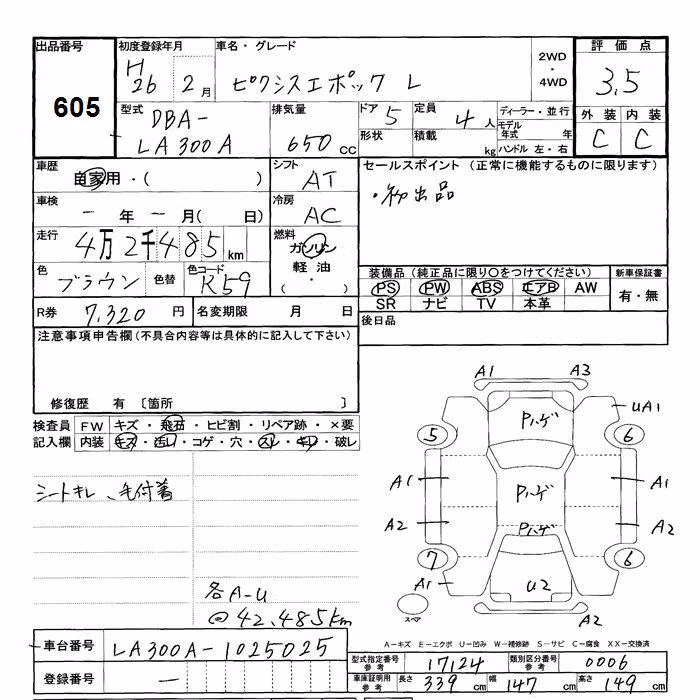 出品番号 605
初度登録年月 H26 2月
車名・グレード ピクシスエポック L
2WD・4WD
評価点 3.5
外装 内装
C C
型式 DBA-LA300A
排気量 650cc
ドア 5
形状
定員 4人
積載 kg
ディーラー・並行
モデル年式 年
ハンドル 左・右
車歴 自家用・( )
シフト AT
セールスポイント (正常に機能するものに限ります)
・初出品
車検 ー年ー月( 日)
冷房 AC
走行 4万2千485km
燃料 ガソリン
軽油・( )
色 ブラウン 色替 色コード R59
装備品(純正品に限り○をつけてください) 新車保証書
PS PW ABS エアB AW 有・無
SR ナビ TV 本革
R券 7,320円 名変期限 月 日
後日品
注意事項申告欄(不具合内容等は具体的に記入して下さい)
修復歴 有 〔箇所 〕
検査員記入欄 FW キズ・飛石・ヒビ割・リペア跡・×要
内装 キズ・汚レ・コゲ・穴・スレ・キレ・破レ
シートキレ、毛付着
各A-U
@42,485km
A1 A3
Pハゲ UA1
5 6
A1 Pハゲ A1
A2 Pハゲ A2
7 6
A1 U2
スペア A2
A-キズ E-エクボ U-凹み W-補修跡 S-サビ C-腐食 XX-交換済
車台番号 LA300A-1025025
登録番号 ー
型式指定番号 参考 17124 類別区分番号 参考 0006
車庫証明用 参考 長さ 339cm 幅 147cm 高さ 149cm